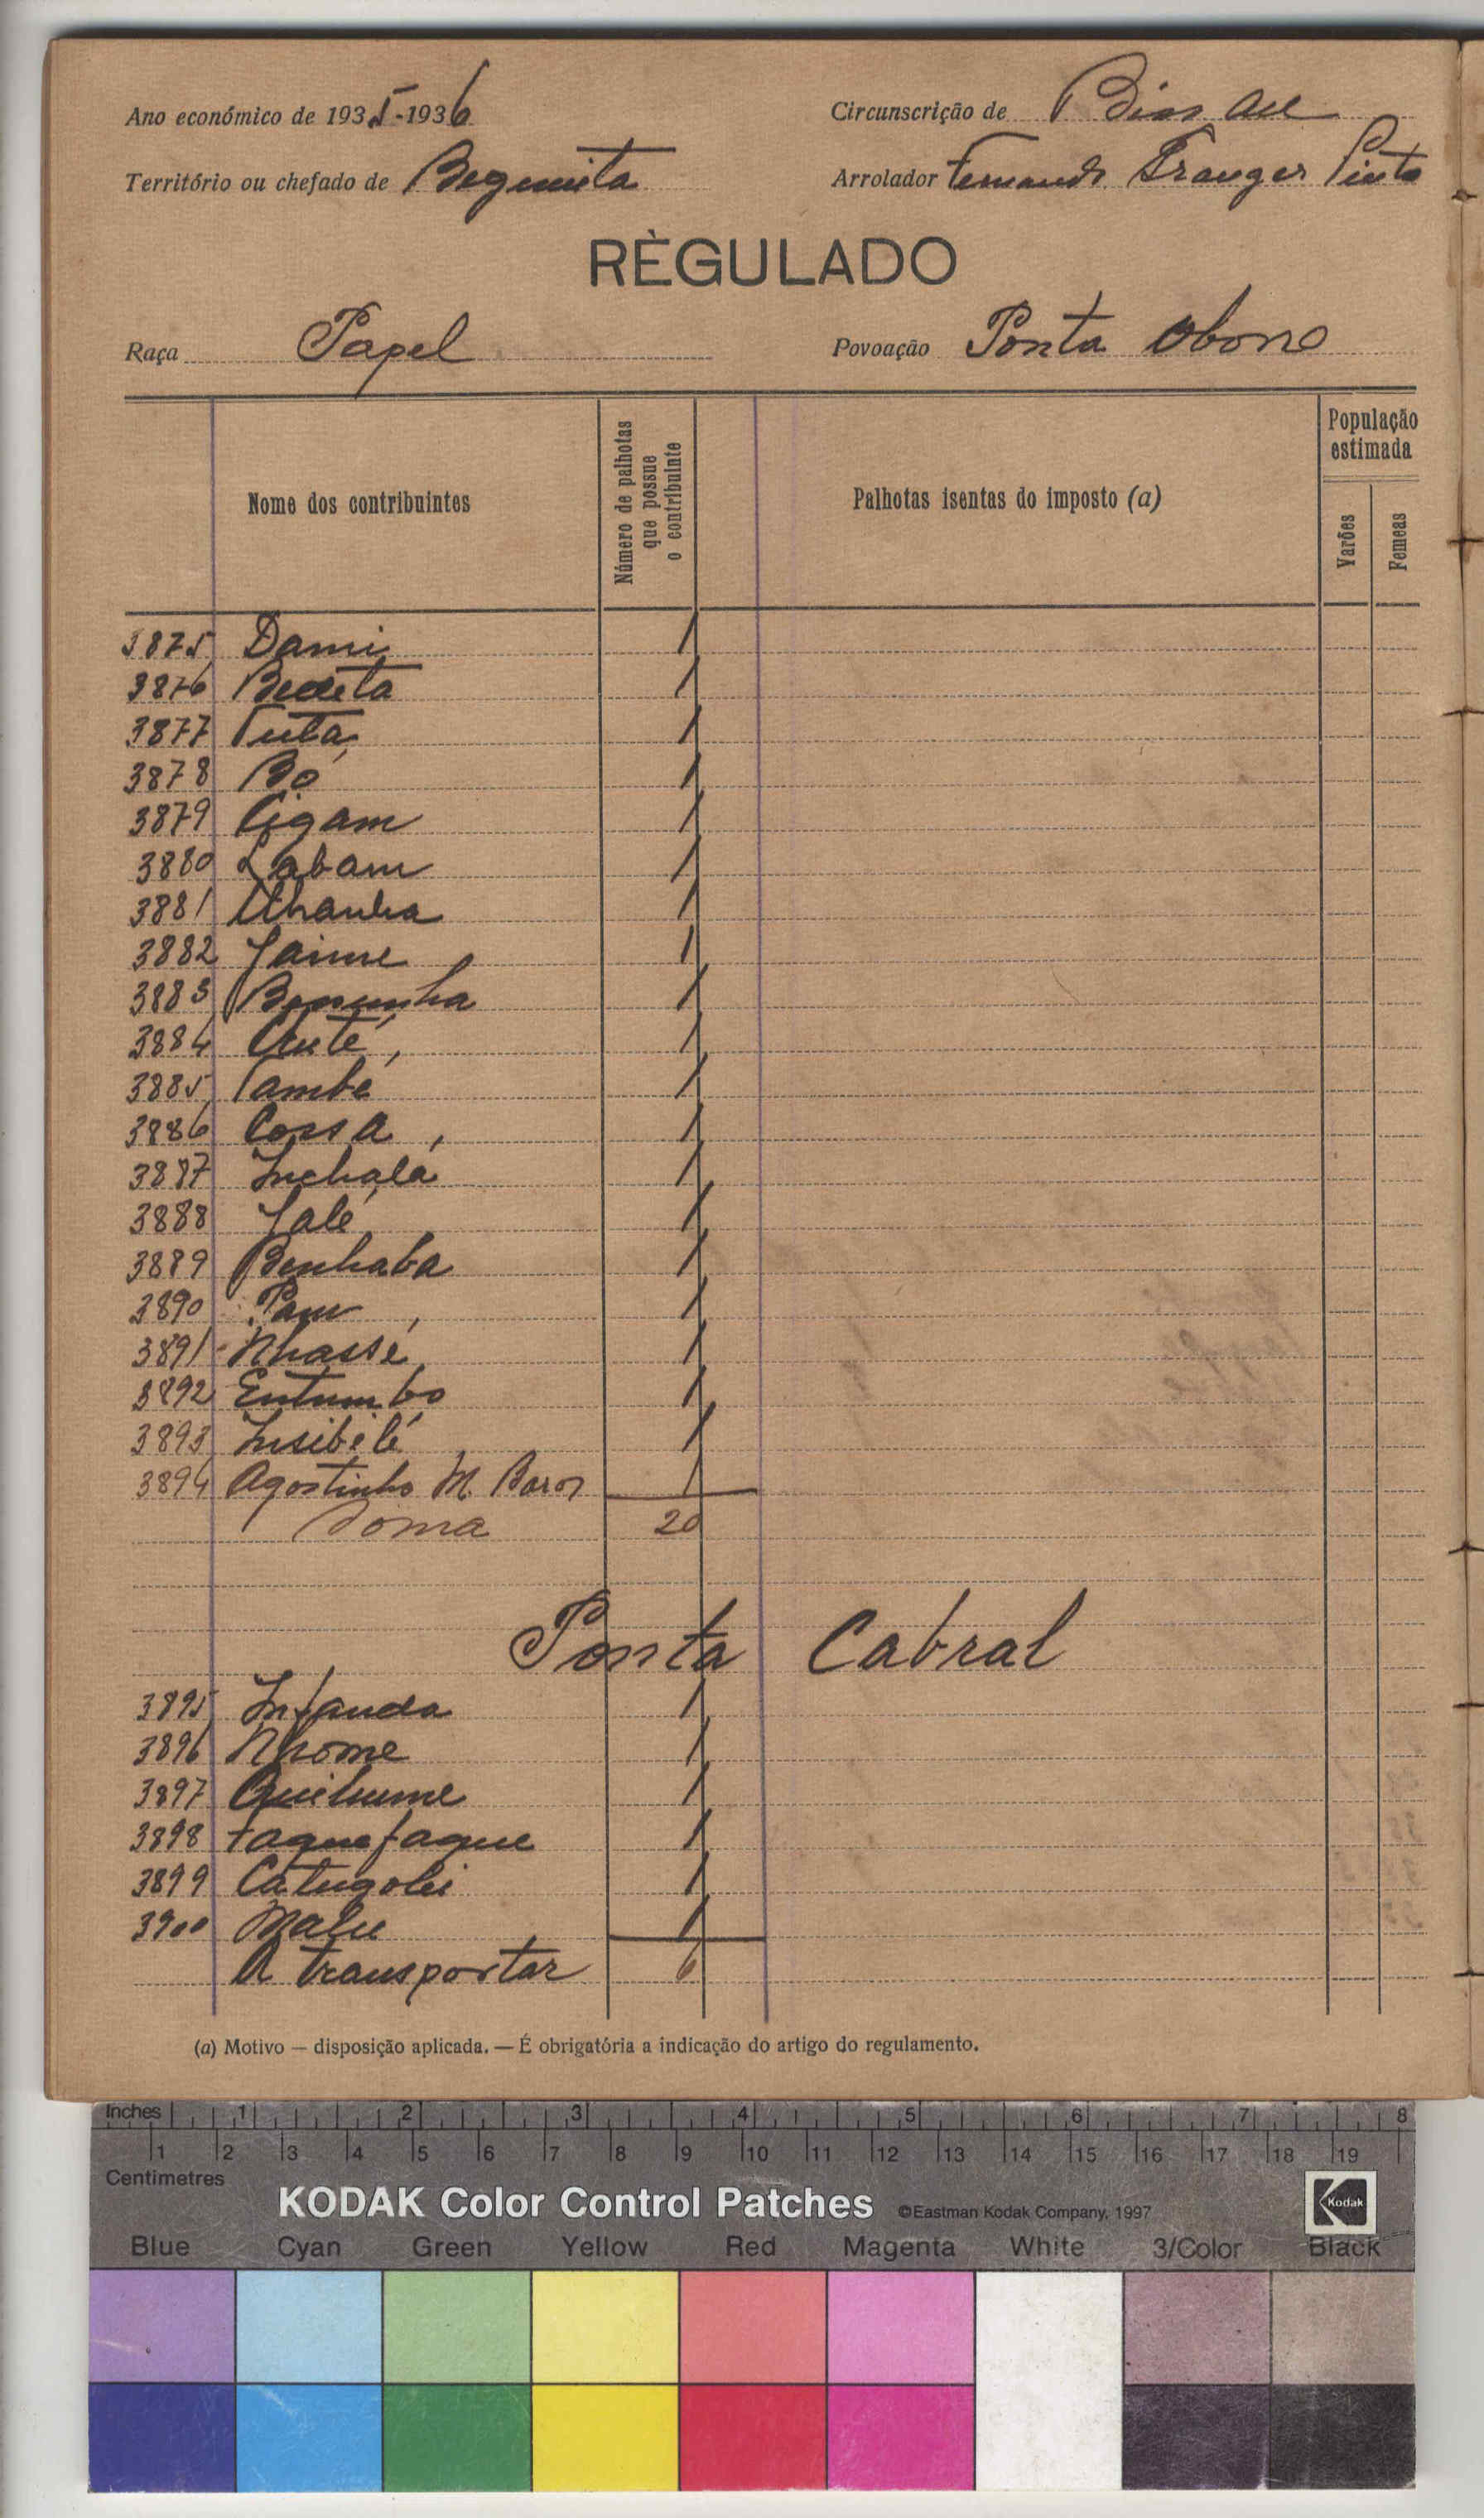 Ano económico de 1935-1936 Circunscrição de Bissau
Território ou chefado de Begemita Arrolador Fernando Pinto
RÈGULADO
Raça Papel Povoação Ponta Obono
Nome dos contribuintes
Número de palhotas que possue o contribuinte
Palhotas isentas do imposto (a)
População estimada
Varões
Femeas
3875 Dami 1
3876 1
3877 1
3878 Bó 1
3879 1
3880 Labam 1
3881 1
3882 Jaime 1
3883 1
3884 1
3885 També 1
3886 Cossa 1
3887 Inchalá 1
3888 Jalé 1
3889 Benhaba 1
3890 Pam 1
3891 Nhassé 1
3892 Entumbo 1
3893 Insibilé 1
3894 Agostinho M. Baros 1
Soma 20
Ponta Cabral
3895 Infanda 1
3896 Nhome 1
3897 Quilume 1
3898 Faquefaque 1
3899 1
3900 Malu 1
A transportar 6
(a) Motivo — disposição aplicada. — É obrigatória a indicação do artigo do regulamento.
Inches 1 2 3 4 5 6 7 8
1 2 3 4 5 6 7 8 9 10 11 12 13 14 15 16 17 18 19
Centimetres
KODAK Color Control Patches ©Eastman Kodak Company, 1997 Kodak
Blue Cyan Green Yellow Red Magenta White 3/Color Black